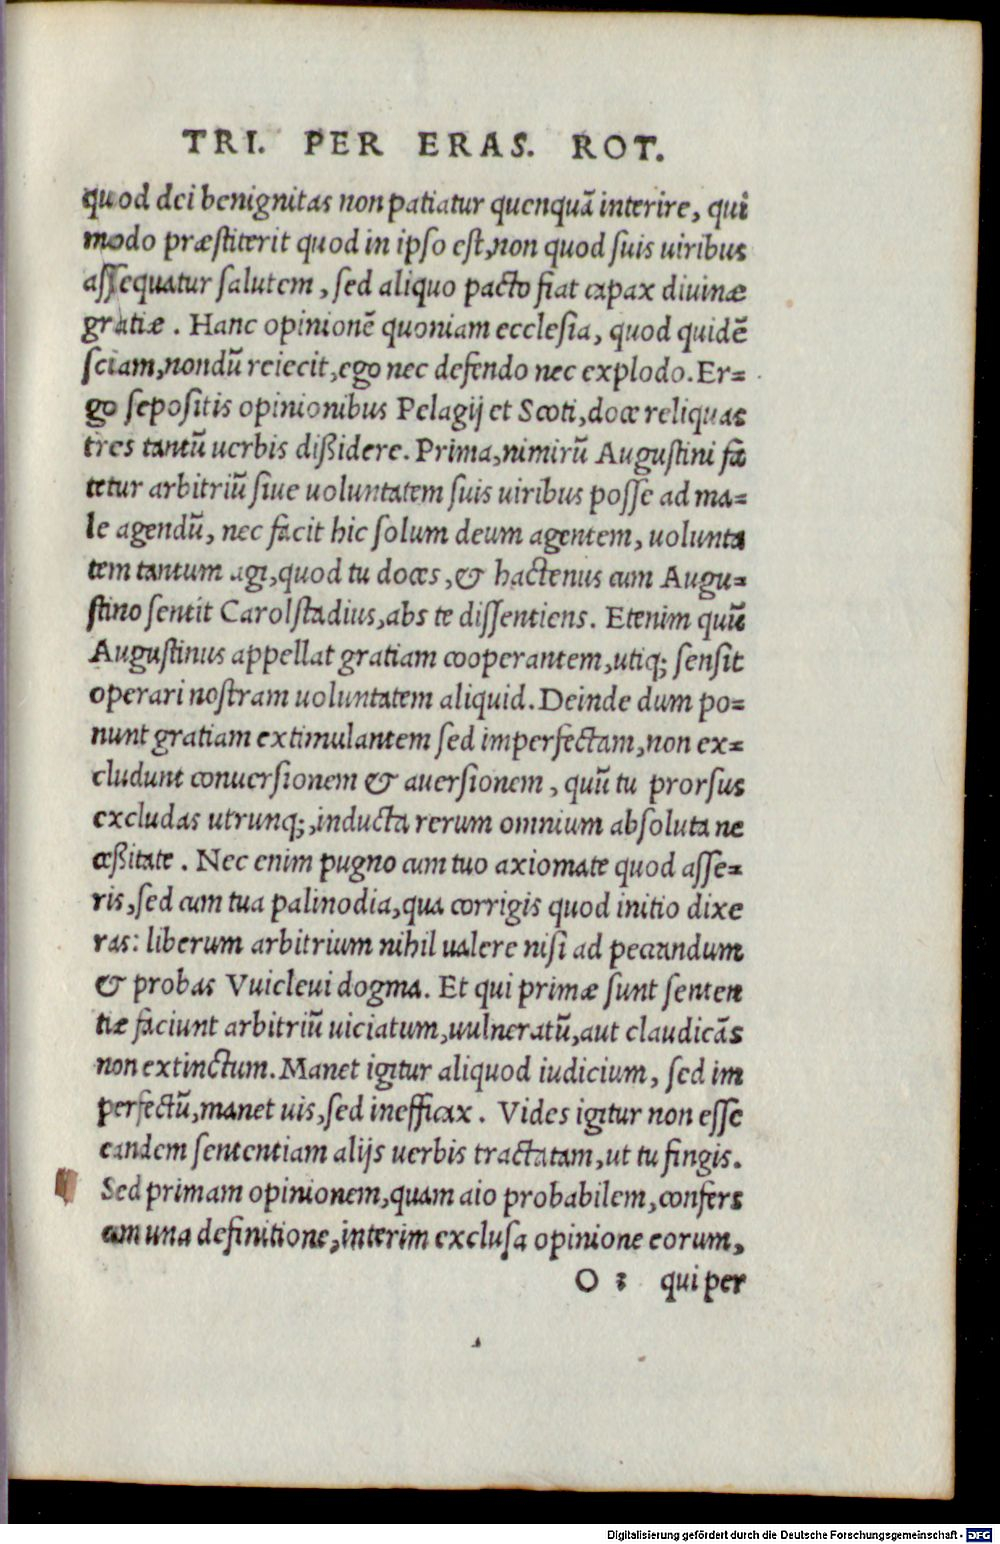 TRI. PER ERAS. ROT.
quod dei benignitas non patiatur quenquā interire, qui
modo præstiterit quod in ipso est, non quod suis uiribus
assequatur salutem, sed aliquo pacto fiat capax diuinæ
gratiæ. Hanc opinionē quoniam ecclesia, quod quidē
sciam, nondū reiecit, ego nec defendo nec explodo. Er=
go sepositis opinionibus Pelagij et Scoti, doce reliquas
tres tantū uerbis dißidere. Prima, nimirū Augustini fa
tetur arbitriū siue uoluntatem suis uiribus posse ad ma=
le agendū, nec facit hic solum deum agentem, uolunta
tem tantum agi, quod tu doces, & hactenus cum Augu=
stino sentit Carolstadius, abs te dissentiens. Etenim quū
Augustinus appellat gratiam cooperantem, utiq; sensit
operari nostram uoluntatem aliquid. Deinde dum po=
nunt gratiam extimulantem sed imperfectam, non ex=
cludunt conuersionem & auersionem, quū tu prorsus
excludas utrunq;, inducta rerum omnium absoluta ne
ceßitate. Nec enim pugno cum tuo axiomate quod asse=
ris, sed cum tua palinodia, qua corrigis quod initio dixe
ras: liberum arbitrium nihil ualere nisi ad peccandum
& probas Vuicleui dogma. Et qui primæ sunt senten
tiæ faciunt arbitriū uiciatum, uulneratū, aut claudicās
non extinctum. Manet igitur aliquod iudicium, sed im
perfectū, manet uis, sed inefficax. Vides igitur non esse
eandem sententiam alijs uerbis tractatam, ut tu fingis.
Sed primam opinionem, quam aio probabilem, confers
cum una definitione, interim exclusa opinione eorum,
O 2 qui per
Digitalisierung gefördert durch die Deutsche Forschungsgemeinschaft - DFG